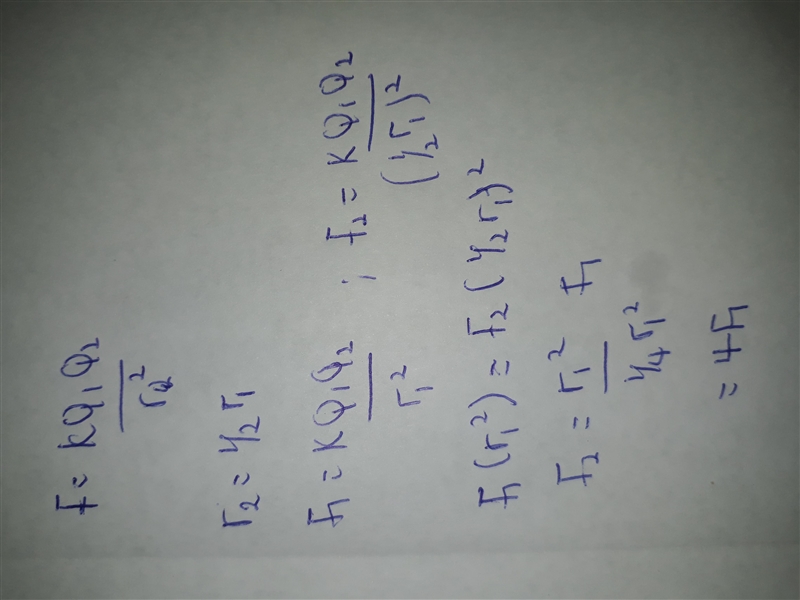 F = kQ₁Q₂ / r²
r₂ = ½ r₁
F₁ = KQ₁Q₂ / r₁² ; F₂ = KQ₁Q₂ / (½ r₁)²
F₁(r₁²) = F₂(½ r₁)²
F₂ = r₁² / ¼ r₁² F₁
= 4F₁